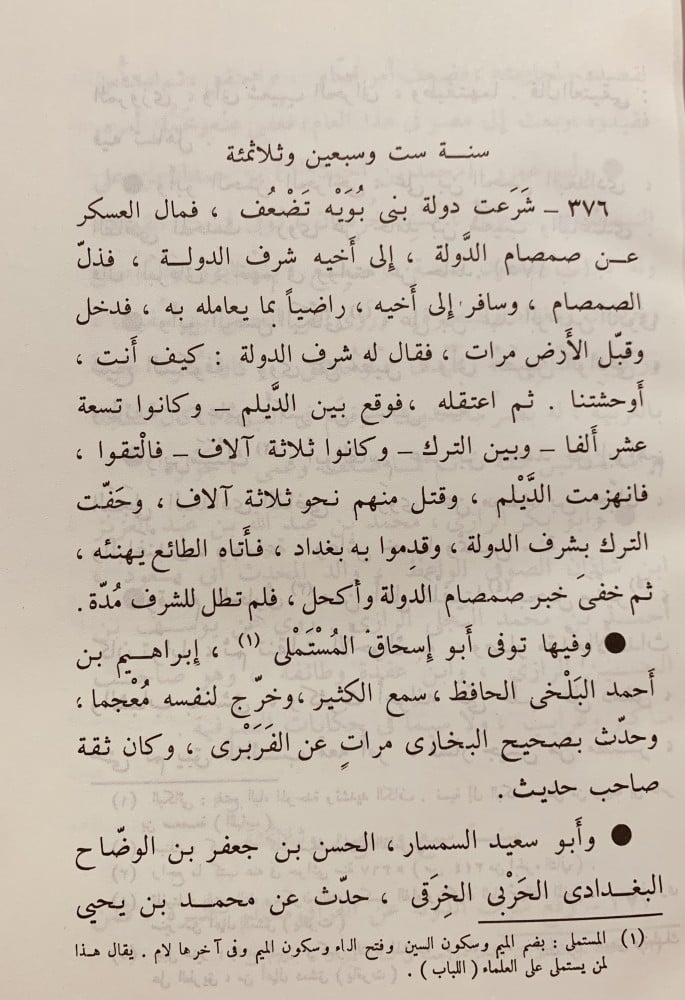 سنــة ست وسبعين وثلاثمئة
٣٧٦ ــ شَرَعت دولة بنى بُوَيْه تَضْعُف ، فمال العسكر
عــن صمصام الدَّولة ، إلى أَخيه شرف الدولــة ، فذلّ
الصمصام ، وسافر إلى أَخيه ، راضياً بما يعامله به ، فدخل
وقبّل الأَرض مرات ، فقال له شرف الدولة : كيف أَنت ،
أَوحشتنا . ثم اعتقله ، فوقع بين الدَّيلم ــ وكانوا تسعة
عشر أَلفا ــ وبين الترك ــ وكانوا ثلاثة آلاف ــ فالْتقوا ،
فانهزمت الدَّيْلم ، وقتل منهم نحو ثلاثة آلاف ، وحَفّت
الترك بشرف الدولة ، وقدِموا به بغداد ، فأَتاه الطائع يهنئه ،
ثم خفىَ خبر صمصام الدولة وأكحل ، فلم تطل للشرف مُدّة .
● وفيها توفى أَبو إسحاق المُسْتَمْلى (١) ، إبراهــيم بن
أَحمد البَلْخى الحافظ ، سمع الكثير ، وخرّج لنفسه مُعْجما ،
وحدّث بصحيح البخارى مراتٍ عن الفَرَبْرى ، وكان ثقة
صاحب حديث .
● وأَبو سعيد السمسار ، الحسن بن جعفر بن الوضّاح
البغــدادى الحَرْبى الخِرَقى ، حدّث عن محمــد بن يحيى
(١) المستملى : بضم الميم وسكون السين وفتح التاء وسكون الميم وفى آخرها لام . يقال هــذا
لمن يستملى على العلماء ( اللباب ) .